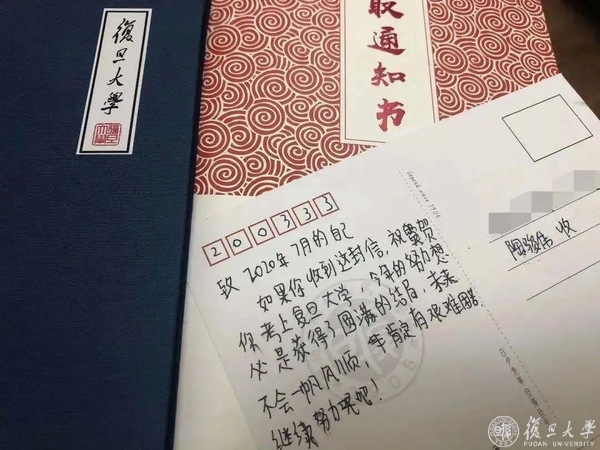 復旦大學
取通知书
Legend since 1905
200333
收
致 2020年7月的自己
如果你收到这封信,祝贺
你考上复旦大学,今年的努力想
必是获得了圆满的结局,未来
不会一帆风顺,肯定有艰难
继续努力吧!
復旦大學
FUDAN UNIVERSITY